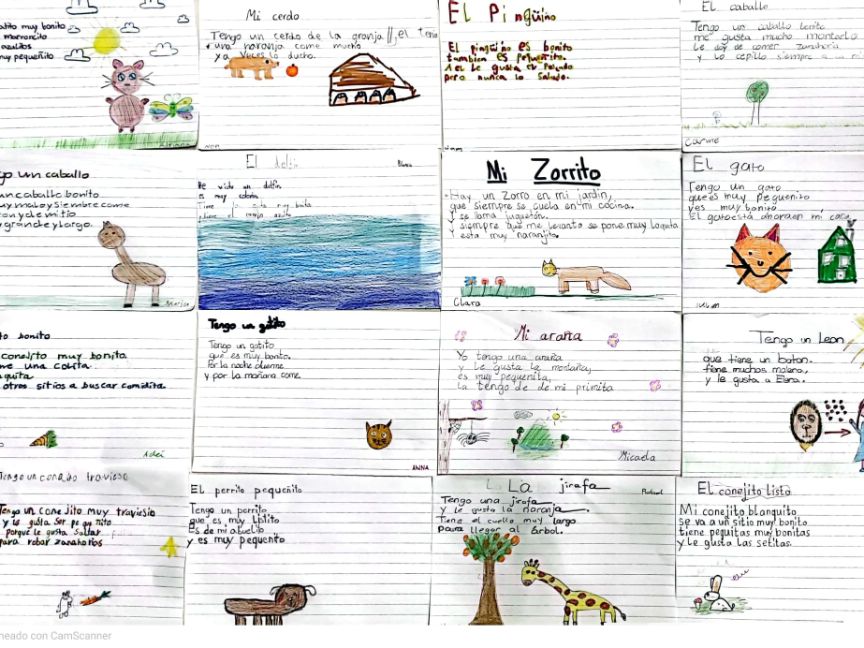 atito muy bonito
marroncito
azulitos
muy pequeñito
Mi cerdo
Tengo un cerdo de la granja, el tenia
una naranja come mucho
y a veces lo ducho.
El Pingüino
El pingüino es bonito
tambien es pequeñito.
A el le gusta el pescado
pero nunca lo salado.
El caballo
Tengo un caballo bonito
me gusta mucho montarlo
Le doy de comer zanahoria
y lo cepillo siempre a
Carme
go un caballo
un caballo bonito
muy malo y siembre come
on y de mi tio
grande y largo.
El delfín
He visto un delfín
es muy
Tiene la
Mi Zorrito
Hay un Zorro en mi jardin,
que siempre se cuela en mi cocina.
Y se llama juguetón.
Y siempre que me levanto se pone muy loquito
Y esta muy naranjito.
Clara
El gato
Tengo un gato
que es muy pequeñito
yes muy bonito
El gato está ahora en mi casa
to bonito
conejito muy bonito
me una colita
guita
otros sitios a buscar comidita
Adei
Tengo un gatito
Tengo un gatito
que es muy bonito.
Por la noche duerme
y por la mañana come
ANNA
Mi araña
Yo tengo una araña
y le gusta la montaña,
es muy pequeñita,
la tengo de de mi primita
Micaela
Tengo un Leon
que tiene un boton.
tiene muchos
y le gusta a Elena.
Tengo un conejo travieso
Tengo un conejito muy traviesio
y le gusta ser pequeñito
porque le gusta saltar
para robar zanahorios
El perrito pequeñito
Tengo un perrito
que es muy
es de mi abuelito
y es muy pequeñito
La jirafa
Tengo una jirafa
y le gusta la naranja.
Tiene el cuello muy largo
para llegar al árbol.
El conejito listo
Mi conejito blanquito
se va a un sitio muy bonito
tiene pequitas muy bonitas
y le gusta las setitas.
neado con CamScanner